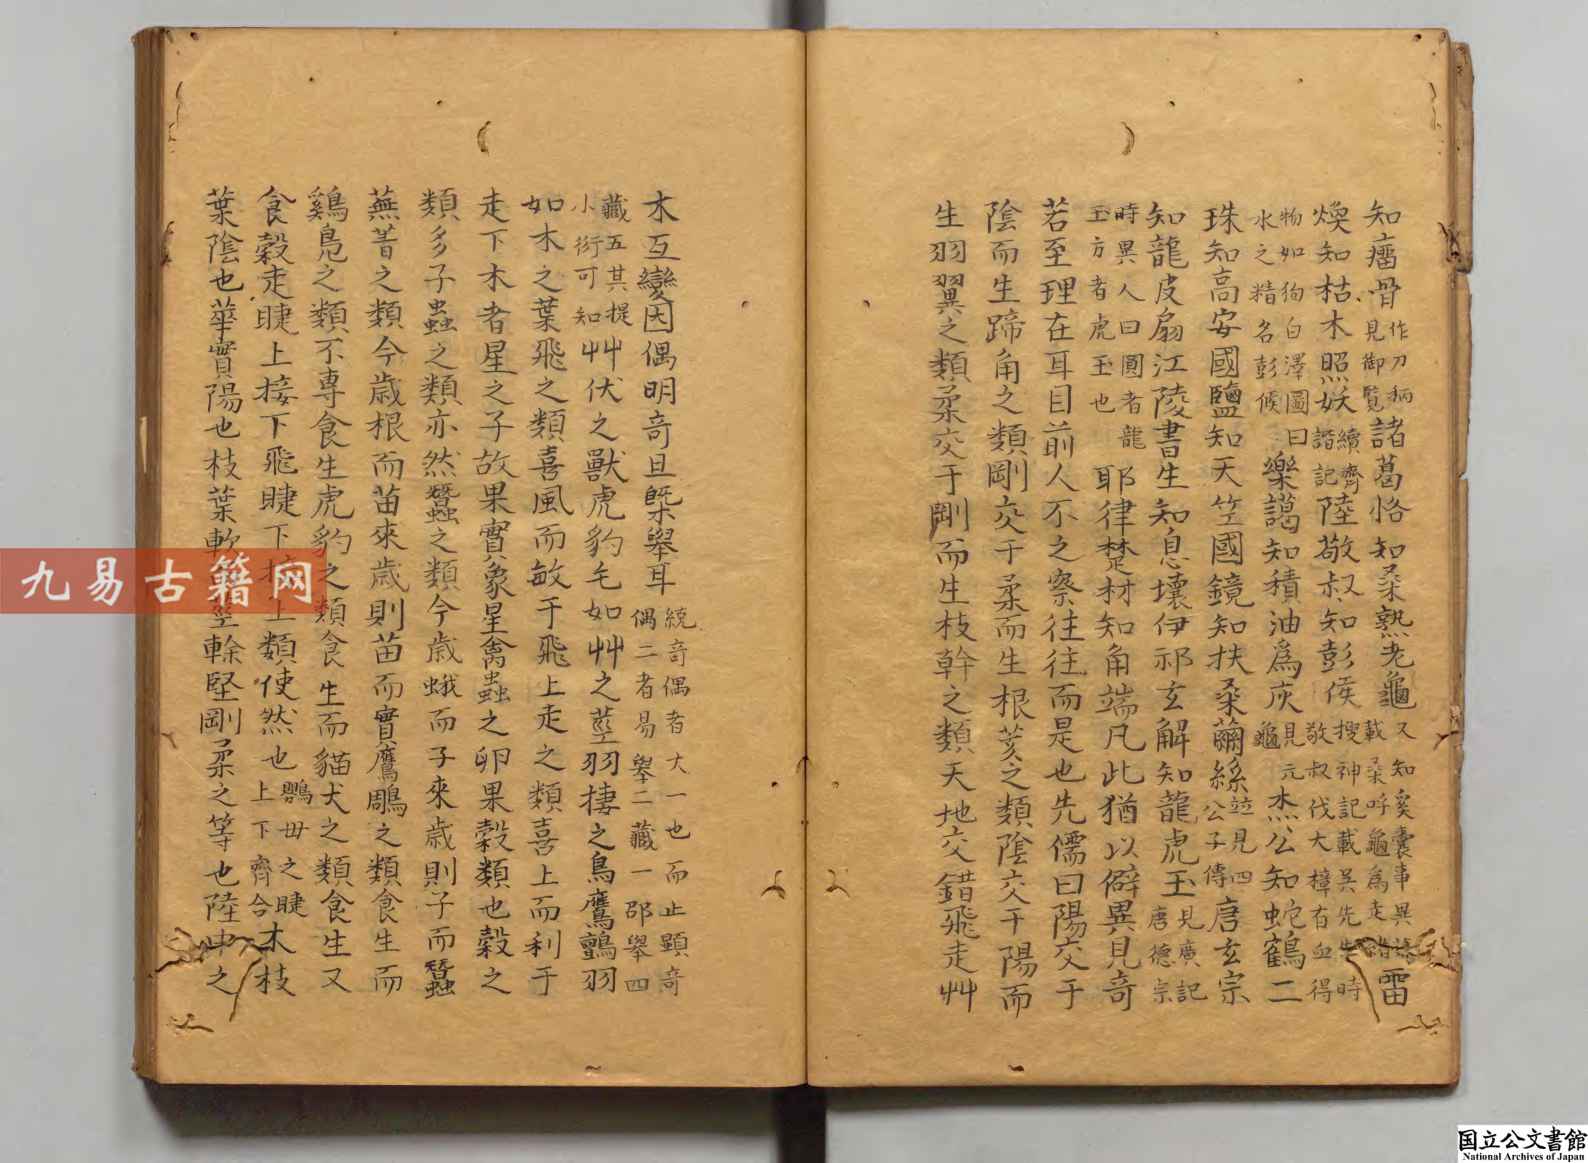 知瘤骨作刀柄見御覧諸葛恪知桑熟老龜又知奚囊事異載桑呼龜為走雷
煥知枯木照妖續齊諧記陸敬叔知彭侯搜神記載吳先時敬叔伐大樟有血得
物如狗白澤圖曰水之精名彭候樂藹知積油為灰見元龜杰公知蛇鶴二
珠知高安國鹽知天竺國鏡知扶桑繭絲竝見四公子傳唐玄宗
知龍皮扇江陵書生知息壤伊祁玄解知龍虎玉見廣記唐德宗
時異人曰圓者龍玉方者虎玉也耶律楚材知角端凡此猶以僻異見奇
若至理在耳目前人不之察往往而是也先儒曰陽交于
陰而生蹄角之類剛交于柔而生根荄之類陰交于陽而
生羽翼之類柔交于剛而生枝幹之類天地交錯飛走艸
木互變因偶明奇旦旣舉耳統奇偶者大一也而止顯奇偶二者易舉二藏一邵舉四
藏五其提小衍可知艸伏之獸虎豹毛如艸之莖羽棲之鳥鷹鸇羽
如木之葉飛之類喜風而敏于飛上走之類喜土而利于
走下木者星之子故果實象星禽蟲之卵果穀類也穀之
類多子蟲之類亦然蠶之類今歲蛾而子來歲則子而蠶
蕪菁之類今歲根而苗來歲則苗而實鷹鵰之類食生而
鷄鳧之類不專食生虎豹之類食生而貓犬之類食生又
食穀走睫上接下飛睫下接上類使然也鸚毋之睫上下齊合木枝
葉陰也華實陽也枝葉軟莖榦堅剛柔之等也陸中之
九易古籍网
国立公文書館
National Archives of Japan